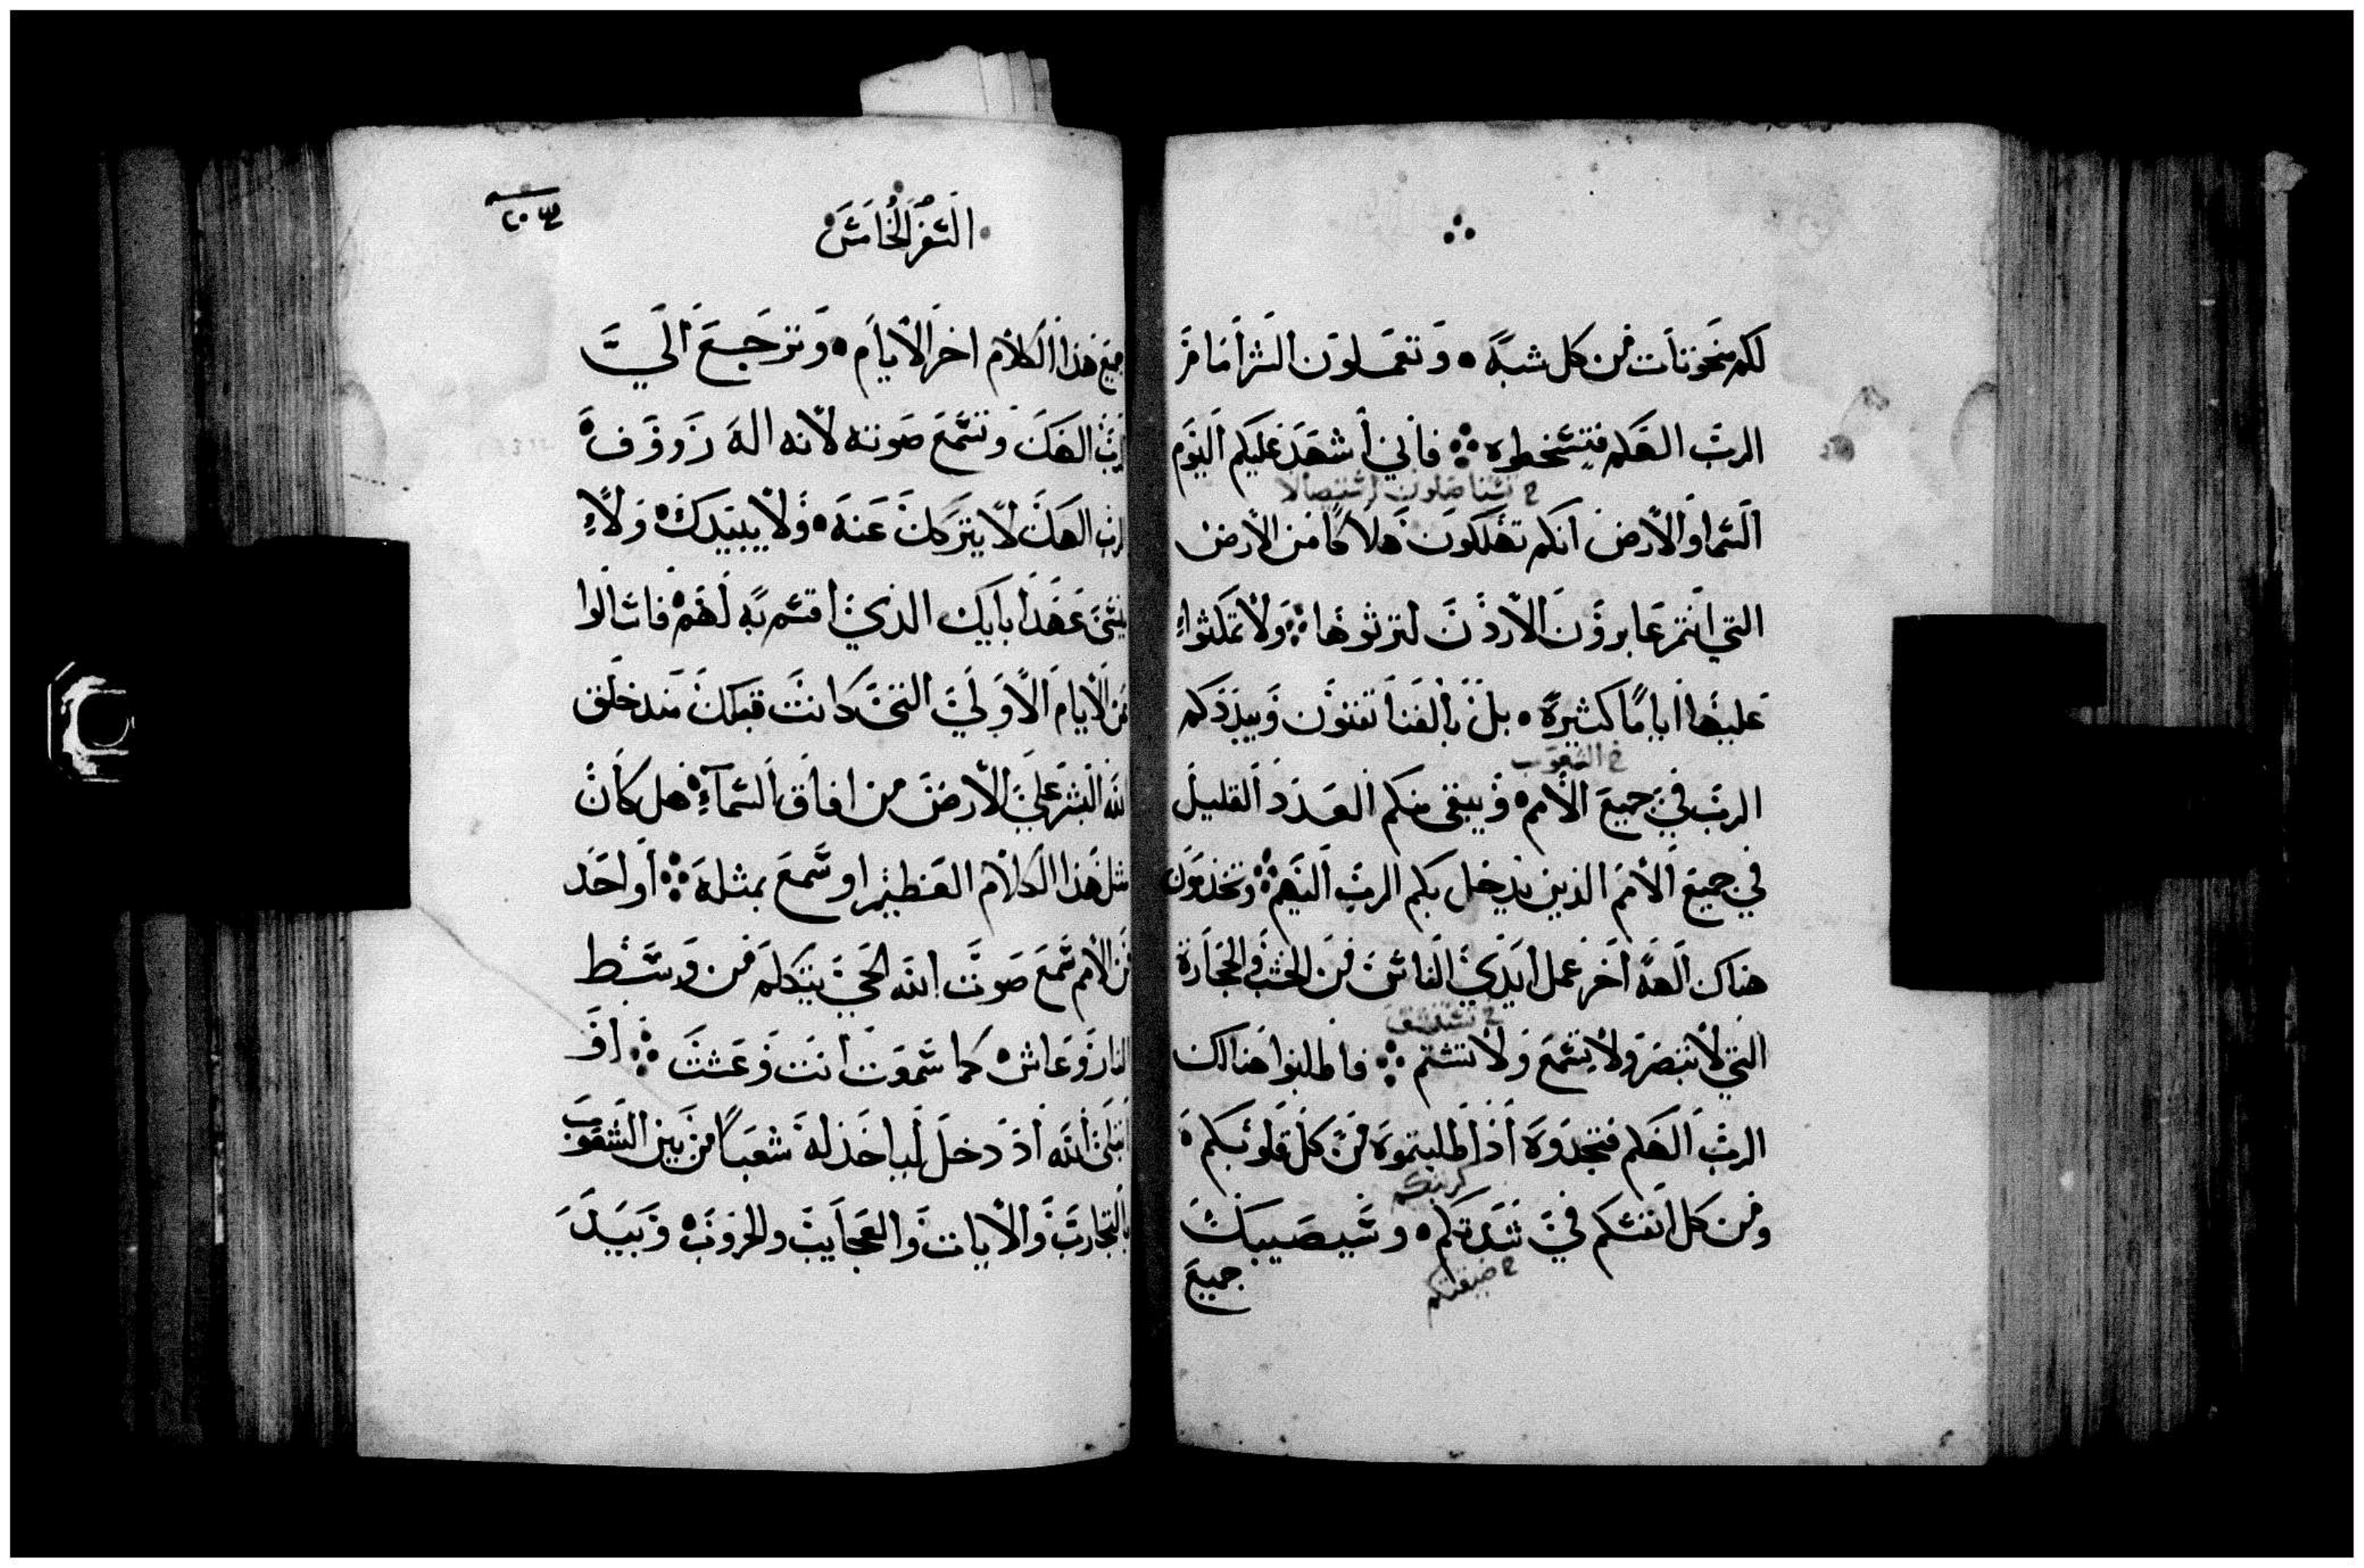 لكم منحوتات من كل شبه وتعملون الشر امامر
الرب الهكم فتسخطوه فاني أشهد عليكم اليوم
ح تستاصلون استيصالا
السما والارض انكم تهلكون هلاكا من الارض
التي انتم عابرون الاردن لترثوها ولا تمكثوا
عليها اياما كثيرة بل بالفنا تفنون ويبددكم
خ الشعوب
الرب في جميع الامم ويبقى منكم العدد القليل
في جميع الامم الذين يدخل بكم الرب اليهم وتخدمون
هناك الهة اخر عمل ايدي الناس من الخشب والحجارة
خ تستنشق
التي لا تبصر ولا تسمع ولا تشتم فاطلبوا هناك
الرب الهكم فتجدوه اذا طلبتموه من كل قلوبكم
كربتكم
ومن كل انفسكم في شدتكم وسيصيبك
خ ضيقتكم
جميع
السفر الخامس
٢٠٣
جميع هذا الكلام اخر الايام وترجع الى
الرب الهك وتسمع صوته لانه اله رووف
الرب الهك لا يتركك عنه ولا يبيدك ولا
ينسى عهد ابايك الذي اقسم به لهم فاسالوا
من الايام الاولى التي كانت قبلك منذ خلق
الله البشر على الارض من افاق السماء هل كان
مثل هذا الكلام العظيم او سمع بمثله او احد
من الامم سمع صوت الله الحي يتكلم من وسط
النار وعاش كما سمعت انت وعشت او
ابتلى الله اذ دخل لياخذ له شعبا من بين الشعوب
بالتجارب والايات والعجايب والحروب وبيد